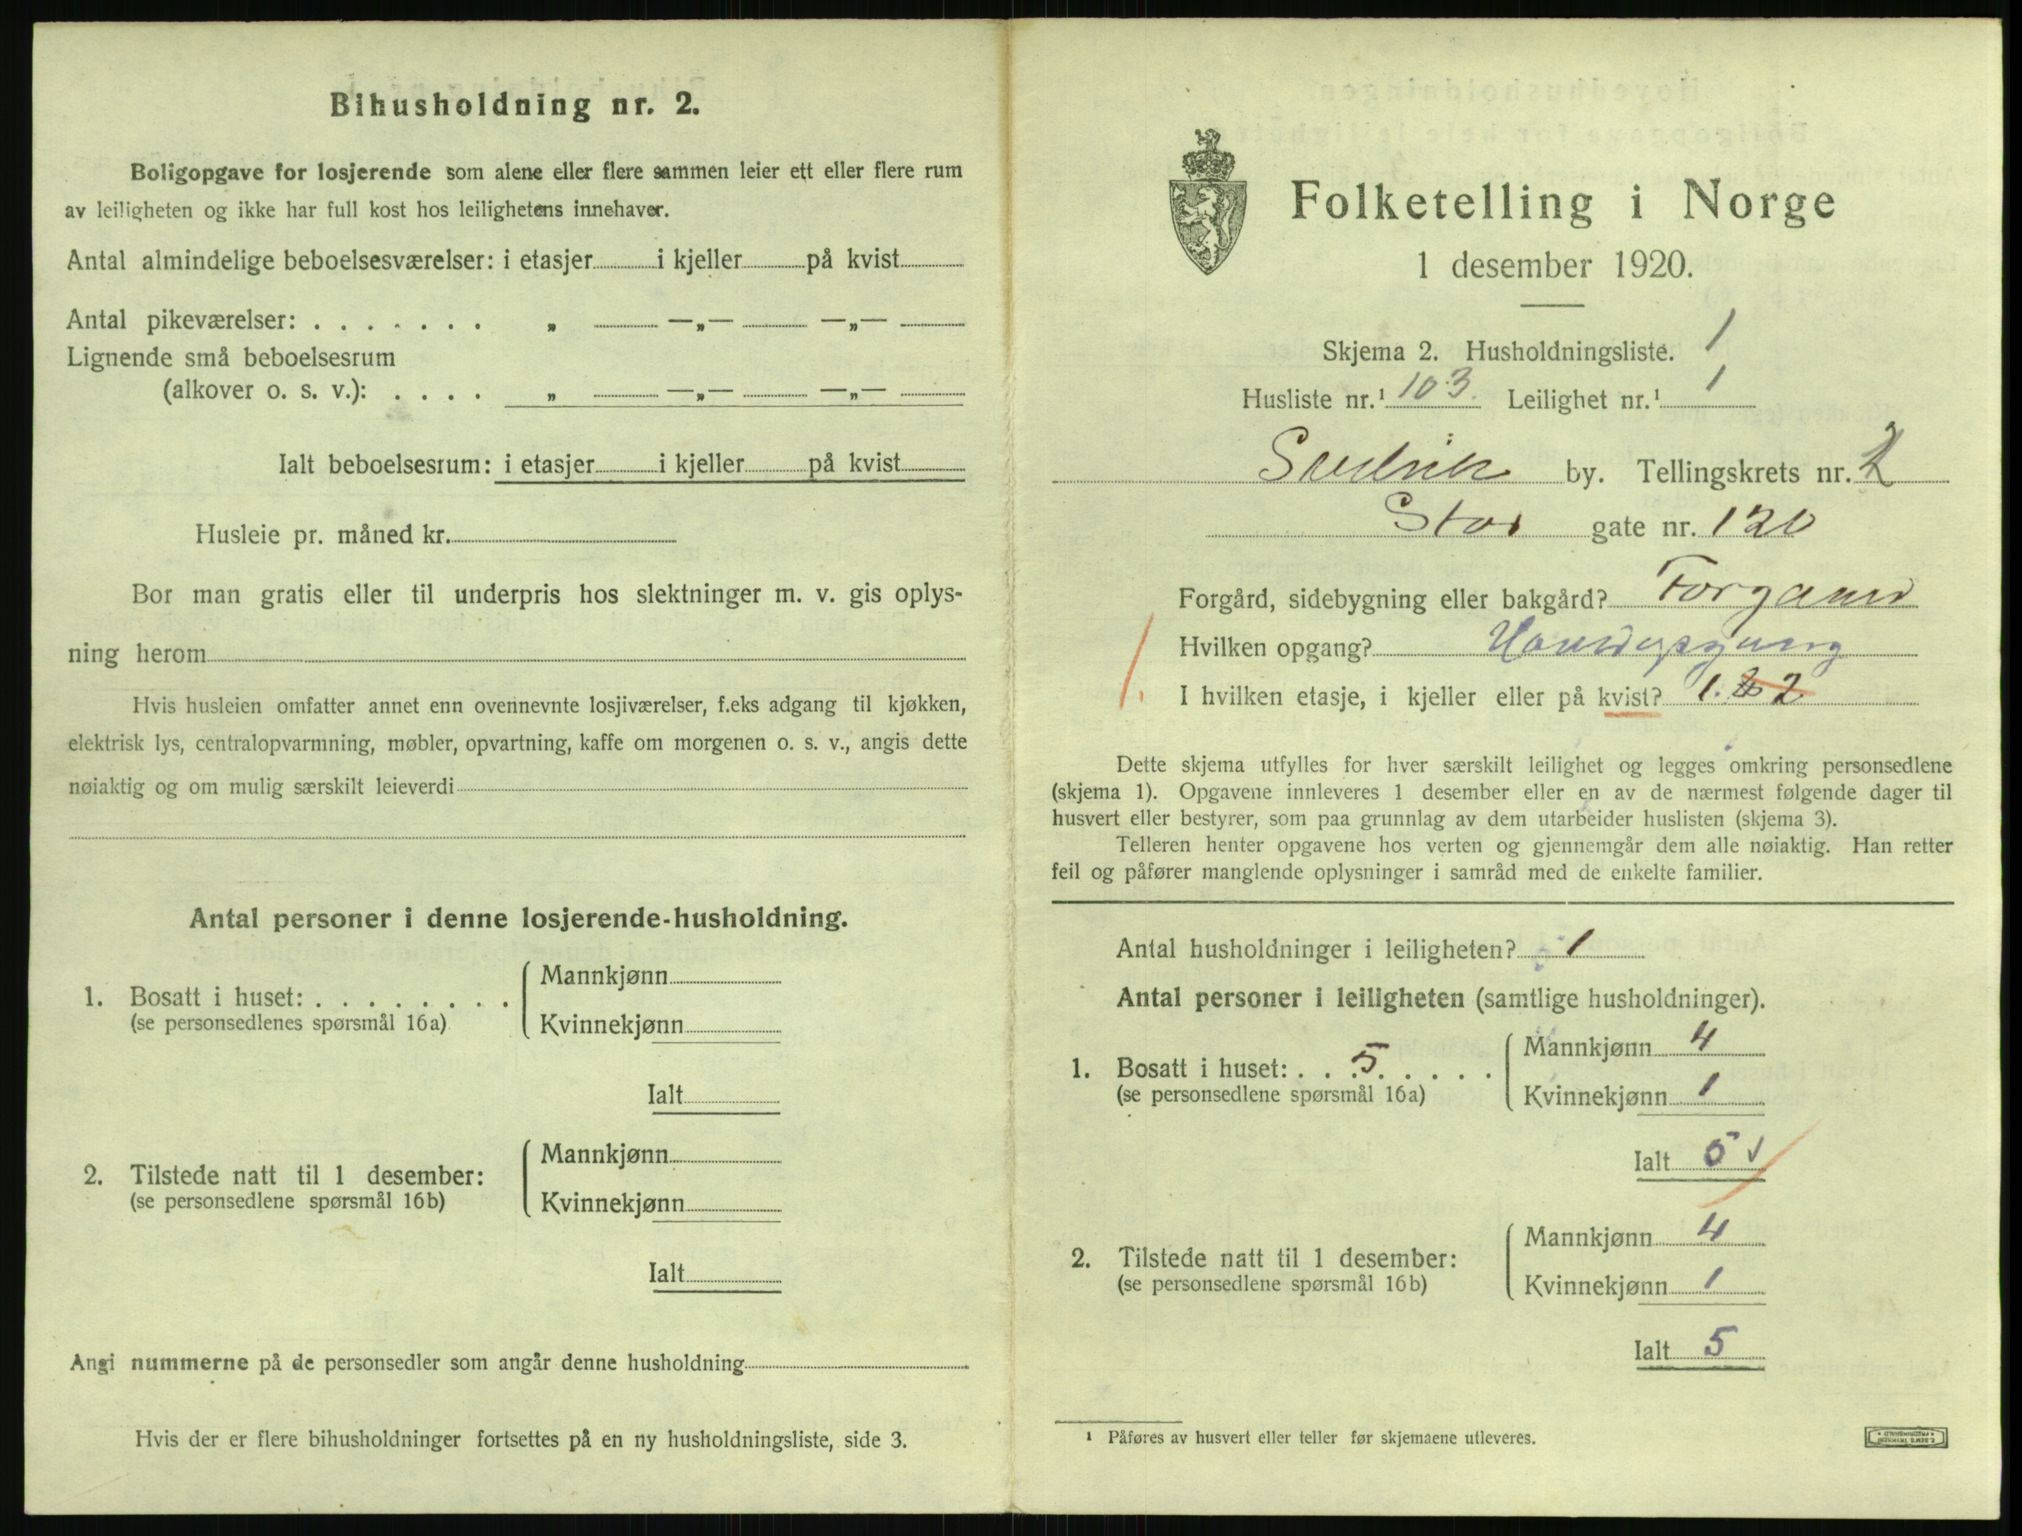 Bihusholdning nr. 2.
Boligopgave for losjerende som alene eller flere sammen leier ett eller flere rum
av leiligheten og ikke har full kost hos leilighetens innehaver.
Antal almindelige beboelsesværelser: i etasjer i kjeller på kvist
Antal pikeværelser: . . . . . . . „ —„— —„—
Lignende små beboelsesrum
(alkover o. s. v.): . . . . „ —„— —„—
Ialt beboelsesrum: i etasjer i kjeller på kvist
Husleie pr. måned kr.
Bor man gratis eller til underpris hos slektninger m. v. gis oplys-
ning herom
Hvis husleien omfatter annet enn ovennevnte losjiværelser, f.eks adgang til kjøkken,
elektrisk lys, centralopvarmning, møbler, opvartning, kaffe om morgenen o. s. v., angis dette
nøiaktig og om mulig særskilt leieverdi
Antal personer i denne losjerende-husholdning.
1. Bosatt i huset: . . . . . . . .
(se personsedlenes spørsmål 16a)
Mannkjønn
Kvinnekjønn
Ialt
2. Tilstede natt til 1 desember:
(se personsedlene spørsmål 16b)
Mannkjønn
Kvinnekjønn
Ialt
Angi nummerne på de personsedler som angår denne husholdning
Hvis der er flere bihusholdninger fortsettes på en ny husholdningsliste, side 3.
Folketelling i Norge
1 desember 1920.
Skjema 2. Husholdningsliste. 1
Husliste nr.¹ 103. Leilighet nr.¹ 1
Svelvik by. Tellingskrets nr. 2
Stor gate nr. 120
Forgård, sidebygning eller bakgård? Forgaard
Hvilken opgang?
I hvilken etasje, i kjeller eller på kvist? 1. & 2
Dette skjema utfylles for hver særskilt leilighet og legges omkring personsedlene
(skjema 1). Opgavene innleveres 1 desember eller en av de nærmest følgende dager til
husvert eller bestyrer, som paa grunnlag av dem utarbeider huslisten (skjema 3).
Telleren henter opgavene hos verten og gjennemgår dem alle nøiaktig. Han retter
feil og påfører manglende oplysninger i samråd med de enkelte familier.
Antal husholdninger i leiligheten? 1
Antal personer i leiligheten (samtlige husholdninger).
1. Bosatt i huset: . . 5 . . . . .
(se personsedlene spørsmål 16a)
Mannkjønn 4
Kvinnekjønn 1
Ialt 5 √
2. Tilstede natt til 1 desember:
(se personsedlene spørsmål 16b)
Mannkjønn 4
Kvinnekjønn 1
Ialt 5
¹ Påføres av husvert eller teller før skjemaene utleveres.